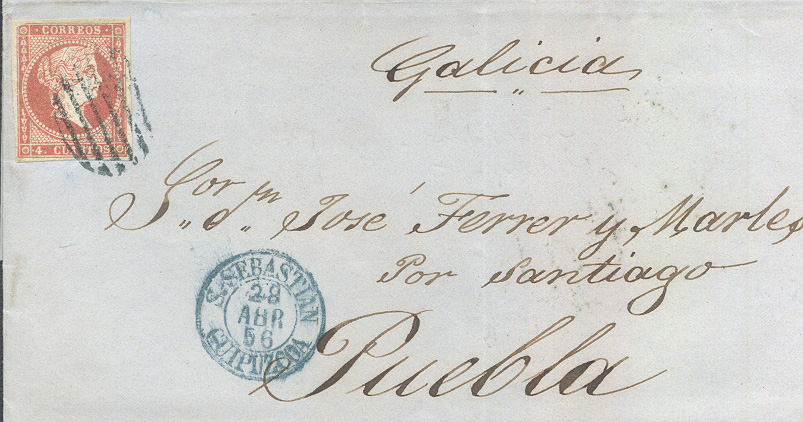 CORREOS
4. CUARTOS
Galicia
S.r d.n José Ferrer y Marles
Por Santiago
Puebla
S. SEBASTIAN
28
ABR
56
GUIPUZCOA